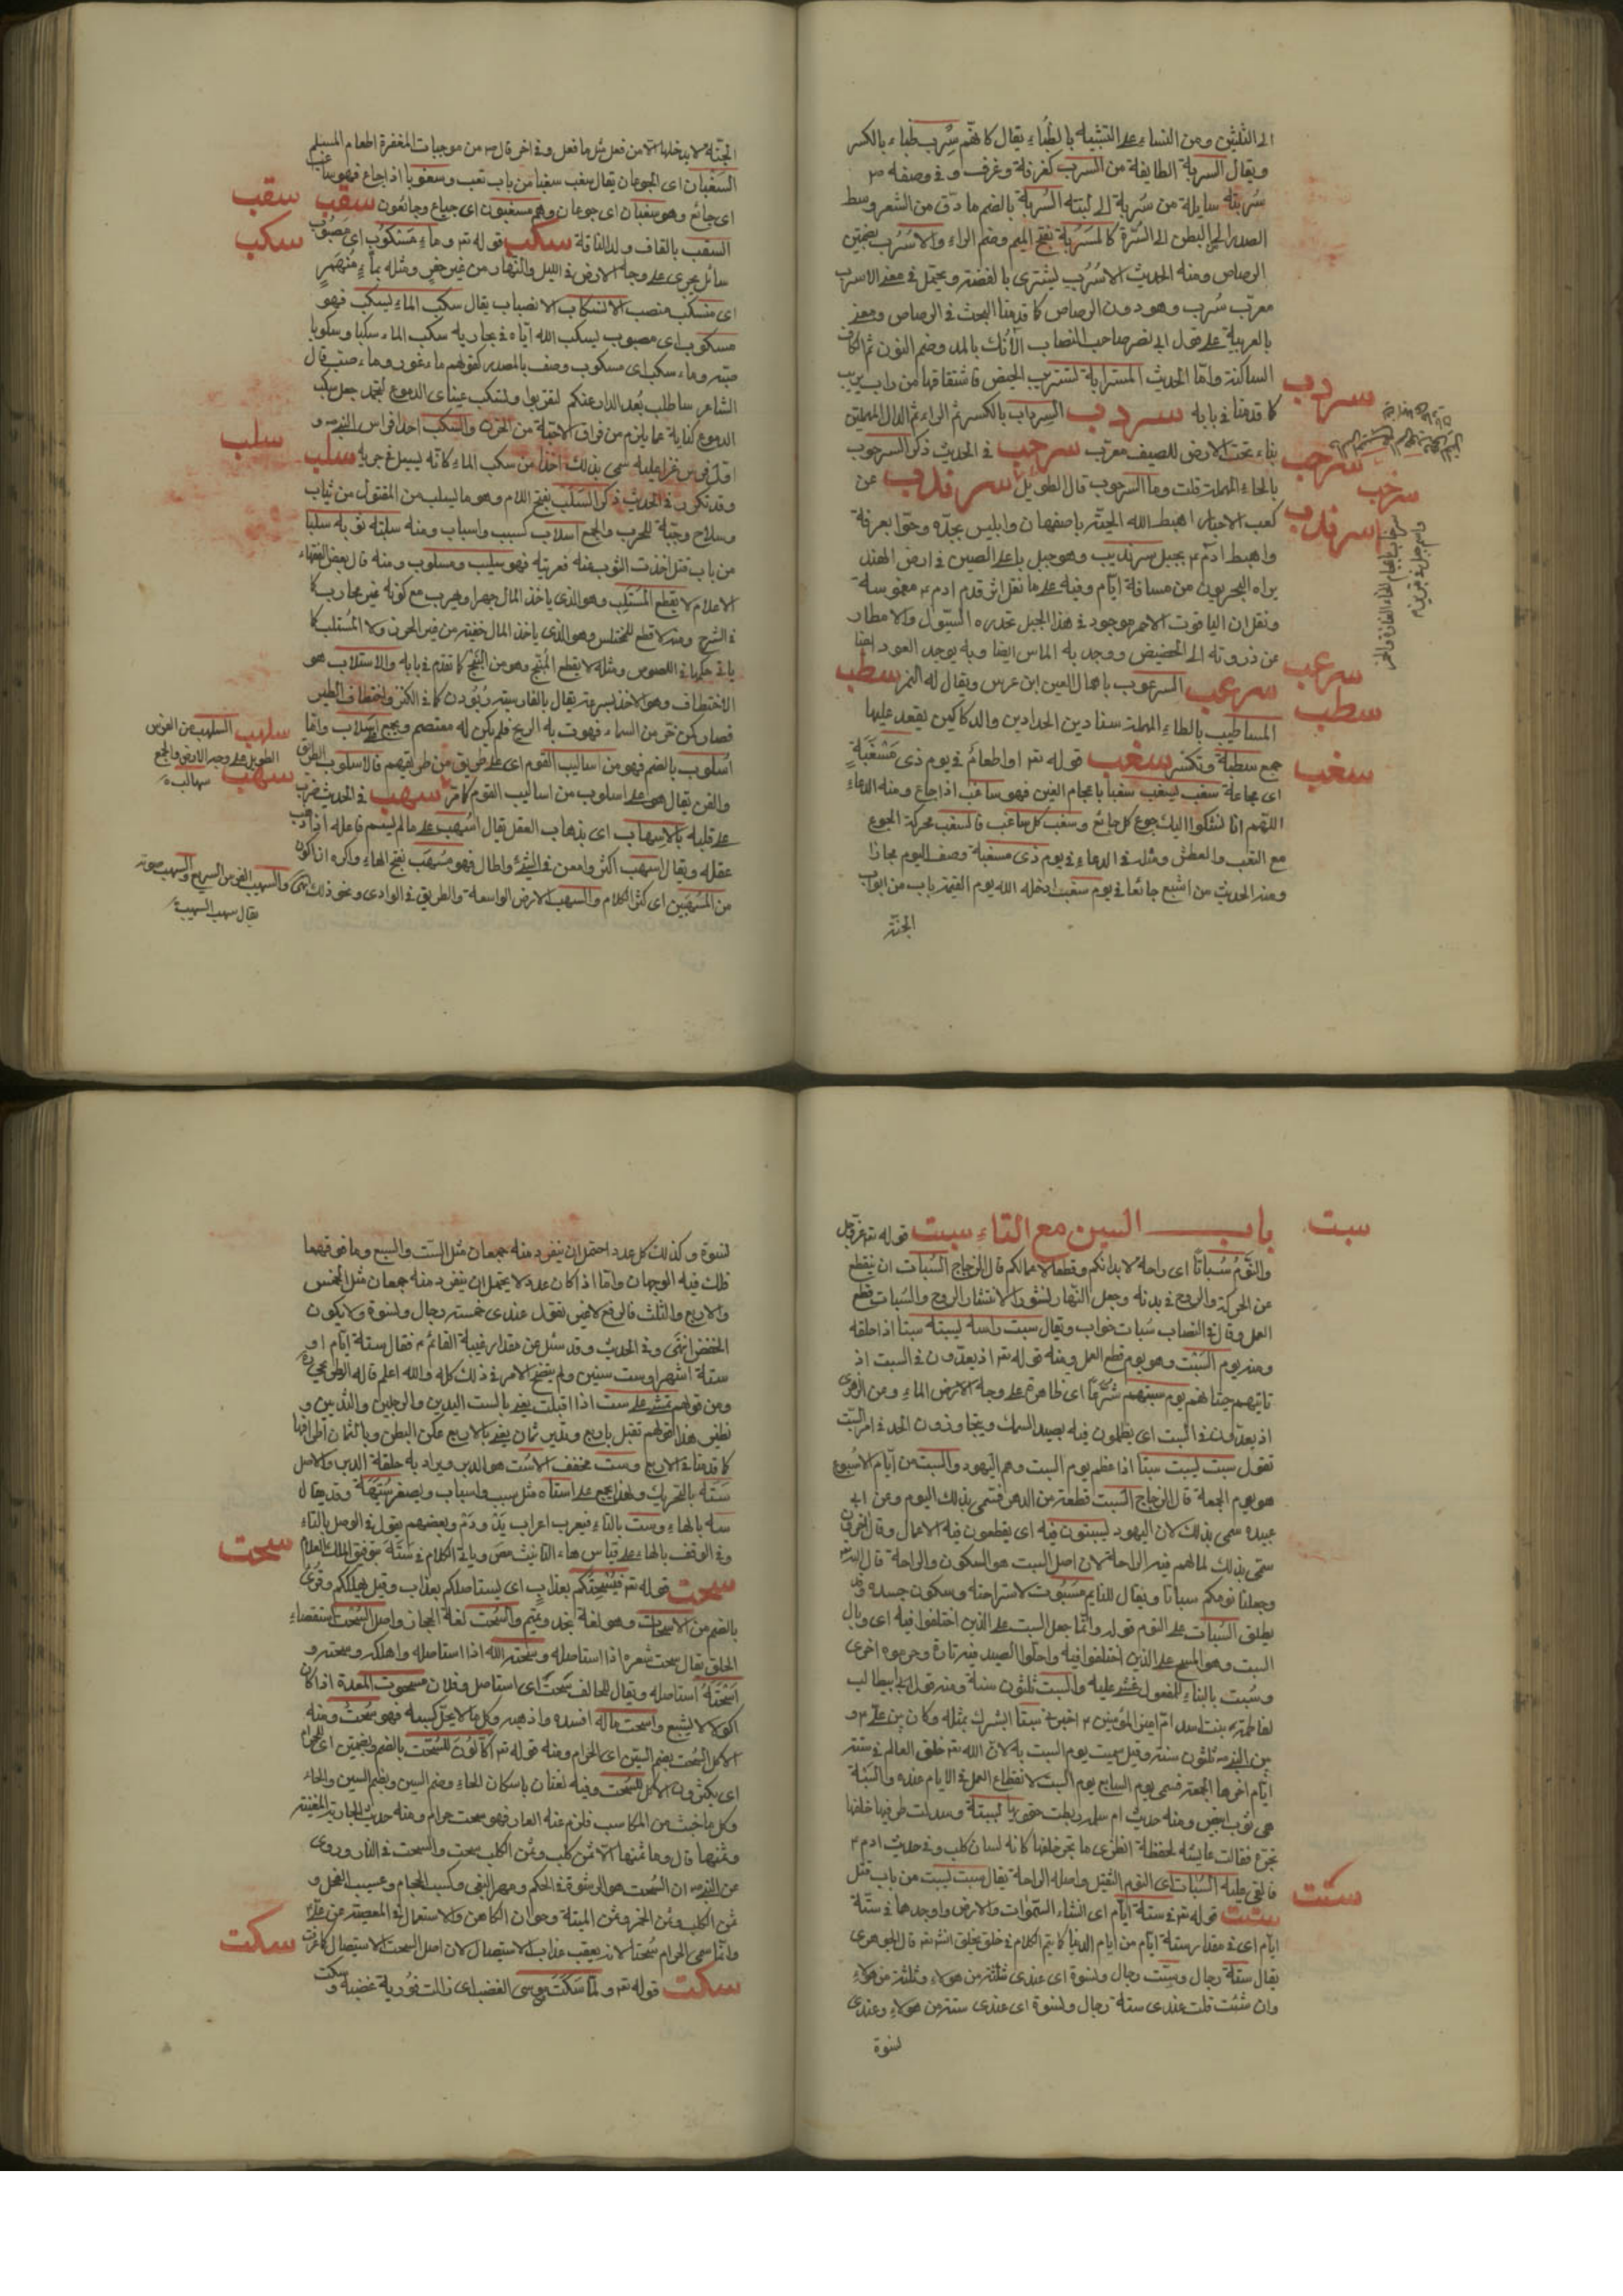 الى الثلثين ومن النساء على التشبيه بالظباء يقال كانهم سرب ظباء بالكسر
ويقال السربة الطايفة من السرب كغرفة وغرف وفى وصفه ص
سربته سايلة من سربة الى لبته السربة بالضم ما دق من الشعر وسط
الصدر الى البطن الى السرة كالمسربة بفتح الميم وضم الراء والاسرب بضمتين
الرصاص ومنه الحديث الاسرب ليشترى بالفضة ويحتمل فى معنى الاسرب
معرب سرب وهو دون الرصاص كما قدمنا البحث فى الرصاص ومعنى
بالعربية على قول ابى نصر صاحب النصاب الآنك بالمد وضم النون ثم الكاف
الساكنة واما الحديث المسترابة لتستريب الحيض فاشتقاقها من راب يريب
كما قدمنا فى بابه سردب السرداب بالكسر ثم الراء ثم الدال المهملتين
بناء تحت الارض للصيف معرب سرحب فى الحديث ذكر السرحوب
بالحاء المهملة قلت وما السرحوب قال الطويل سرندب عن
كعب الاحبار اهبط الله الحية باصفهان وابليس بجده وحوا بعرفة
واهبط ادم ع بجبل سرنديب وهو جبل باعلى الصين فى ارض الهند
يراه البحريون من مسافة ايام وفيه على ما نقل اثر قدم ادم ع مغموسة
ونقل ان الياقوت الاحمر موجود فى هذا الجبل تحدره السيول والامطار
من ذروته الى الحضيض ويوجد به الماس ايضا وبه يوجد العود ايضا
سرعب السرعوب باهمال العين ابن عرس ويقال له النمر سطب
المساطيب بالطاء المهملة سنادين الحدادين والدكاكين يقعد عليها
جمع سطبة وتكسر سغب قوله تعه او اطعام فى يوم ذى مسغبة
اى مجاعة سغب يسغب سغبا باعجام الغين فهو ساغب اذا جاع ومنه الدعاء
اللهم انا نشكوا اليك جوع كل جائع وسغب كل ساغب فالسغب محركة الجوع
مع التعب والعطش ومثله فى الدعاء فى يوم ذى مسغبة وصف اليوم مجازا
ومنه الحديث من اشبع جائعا فى يوم سغب ادخله الله يوم القيمة باب من ابواب
الجنة
سردب
سرحب
سرخب
سرندب
سرعب
سطب
سغب
الجنة لا يدخلها الا من فعل مثل ما فعل وفى اخر قال ص من موجبات المغفرة اطعام المسلم
السغبان اى الجوعان يقال سغب سغبا من باب تعب وسغوبا اذا جاع فهو ساغب
اى جائع وهو سغبان اى جوعان وهم مسغبون اى جياع وجائعون سقب
السقب بالقاف ولد الناقة سكب قوله تعه وماء مسكوب اى مصبوب
سائل يجرى على وجه الارض فى الليل والنهار من غير حفر ومثله بماء منهمر
اى منسكب منصب الانسكاب الانصباب يقال سكب الماء يسكب فهو
مسكوب اى مصبوب يسكب الله اياه فى مجاريه سكب الماء سكبا وسكوبا
صبه وماء سكب اى مسكوب وصف بالمصدر كقولهم ماء غور وماء صب قال
الشاعر ساطلب بعد الدار عنكم لتقربوا وتسكب عيناى الدموع لتجمدا جعل سكب
الدموع كناية عما يلزم من فراق الاحبة من الحزن والسكب احد افراس النبى ص و
اول فرس غزا عليه سمى بذلك اخذا من سكب الماء كانه يسيل فى جريه سلب
وقد تكرر فى الحديث ذكر السلب بفتح اللام وهو ما يسلب من المقتول من ثياب
وسلاح وجبة للحرب والجمع اسلاب كسبب واسباب ومنه سلبته ثوبه سلبا
من باب قتل اخذت الثوب منه فعريته فهو سليب ومسلوب ومنه قال بعض الفقهاء
الاعلام لا يقطع المستلب وهو الذى ياخذ المال جهرا ويهرب مع كونه غير محارب كما
فى الشرح ومنه لا قطع للمختلس وهو الذى ياخذ المال خفية من غير الحرز ولا المستلب كما
الاختطاف وهو الاخذ بسرعة يقال بالفارسية ربودن كما فى الكنز واختطاف الطير
فصار كمن خر من السماء فهوت به الريح فلم يكن له معتصم ويجمع اسلاب واما
اسلوب بالضم فهو من اساليب القوم اى على طريق من طرايقهم فالاسلوب الطريق
والفن يقال هو على اسلوب من اساليب القوم كما مر سهب فى الحديث ضرب
على قلبه بالاسهاب اى بذهاب العقل يقال اسهب على ما لم يسم فاعله اذا ذهب
عقله ويقال اسهب اكثر وامعن فى الشئ واطال فهو مسهب بفتح الهاء واكره ان اكون
من المسهبين اى كثير الكلام والسهب الارض الواسعة والطريق فى الوادى ونحو ذلك
سقب
سكب
سلب
سلهب السلهب من الفرس
الطويل على وجه الارض والجمع
سلاهبة
سهب
والسهب الفرس السريع
يقال
باب السين مع التاء سبت قوله تعه عز وجل
والنوم سباتا اى راحة لابدانكم وقطعا لاعمالكم قال الزجاج السبات ان ينقطع
عن الحركة والروح فى بدنه وجعل النهار نشورا لانتشار الروح والسبات قطع
العمل وقال فى النصاب سبات خواب ويقال سبت راسه يسبته سبتا اذا حلقه
ومنه يوم السبت وهو يوم قطع العمل ومنه قوله تعه اذ يعدون فى السبت اذ
تاتيهم حيتانهم يوم سبتهم شرعا اى ظاهرة على وجه الارض الماء ومن الزهرى
اذ يعدون فى السبت اى يظلمون فيه بصيد السمك ويتجاوزون الحد فى امر السبت
تقول سبت يسبت سبتا اذا عظم يوم السبت وهم اليهود والسبت من ايام الاسبوع
هو يوم الجمعة قال الزجاج السبت قطعة من الدهر فسمى بذلك اليوم وعن ابى
عبيدة سمى بذلك لان اليهود يسبتون فيه اى يقطعون فيه الاعمال وقال اخرون
سمى بذلك لما لهم فيه الراحة لان اصل السبت هو السكون والراحة قال الله تعه
وجعلنا نومكم سباتا ويقال للنايم مسبوت لاستراحته وسكون جسده وقد
يطلق السبات على النوم قوله وانما جعل السبت على الذين اختلفوا فيه اى وبال
السبت وهو المسخ على الذين اختلفوا فيه واحلوا الصيد فيه تارة وحرموه اخرى
وسبت بالبناء للمفعول غشى عليه والسبت ثلثون سنة ومنه قول ابى طالب
لفاطمة بنت اسد ام امير المؤمنين ع اصبرى سبتا ابشرك بمثله وكان بين على ع و
بين النبى ص ثلثون سنة وقيل سميت يوم السبت به لان الله تعه خلق العالم فى ستة
ايام اخرها الجمعة فسمى يوم السابع يوم السبت لانقطاع العمل فى الايام عنده والسبنة
هى ثوب ابيض ومنه حديث ام سلمة ربطت حقويها بسبنة وسدلت طرفيها خلفها
تجره فقالت عايشه لحفصة انظرى ما تجر خلفها كانه لسان كلب وفى حديث ادم ع
فالقى عليه السبات اى النوم الثقيل واصله الراحة يقال سبت يسبت من باب قتل
ستت قوله تعه فى ستة ايام اى انشاء السموات والارض واوجدها فى ستة
ايام اى فى مقدار ستة ايام من ايام الدنيا كما يتم الكلام فى خلق قال الجوهرى
يقال ستة رجال وست رجال ونسوة اى عندى ثلثة من هولاء وثلثة من هولاء
وان شئت قلت عندى ستة رجال ونسوة اى عندى ستة من هولاء وعندى
نسوة
سبت
ستت
نسوة وكذلك كل عدد احتمل ان ينفرد منه جمعان مثل الست والسبع وما فوقهما
فلك فيه الوجهان واما اذا كان عدد لا يحتمل ان ينفرد منه جمعان مثل الخمس
والاربع والثلث فالرفع لا غير تقول عندى خمسة رجال ونسوة ولا يكون
الخفض انتهى وفى الحديث وقد سئل عن مقدار غيبة القائم ع فقال ستة ايام او
ستة اشهر او ست سنين ولم يتضح الامر فى ذلك كله والله اعلم قاله الطريحى ره
ومن قولهم تمشى على ست اذا اقبلت يعنى بالست اليدين والرجلين والثديين و
نظير هذا قولهم تقبل باربع وتدبر ثمان يعنى بالاربع عكن البطن وبالثمان اطرافها
كما قدمنا فى الاربع وست مخفف الاست هو الدبر ويراد به حلقة الدبر والاصل
سته بالتحريك ولهذا يجمع على استاه مثل سبب واسباب ويصغر ستيهة وقد يقال
سه بالهاء وست بالتاء فيعرب اعراب يد ودم وبعضهم يقول فى الوصل بالتاء
وفى الوقف بالهاء على قياس هاء التانيث وياتى الكلام فى سته بتوفيق الملك العلام
سحت قوله تعه فيسحتكم بعذاب اى يستاصلكم بعذاب وقيل يهلككم وقرئ
بالضم من الاسحات وهو لغة نجد وتميم والسحت لغة الحجاز واصل السحت استقصاء
الحلق يقال سحت شعره اذا استاصله وسحته الله اذا استاصله واهلكه وسحته و
اسحته استاصله ويقال للحالف سحت اى استاصل وفلان مسحوت المعدة اذا كان
اكولا لا يشبع واسحت ماله افسده واذهبه وكل ما لا يحل كسبه فهو سحت ومنه
الاكل السحت بضم السين اى الحرام ومنه قوله تعه اكالون للسحت بالضم وبضمتين اى للحرام
اى يكثرون الاكل للسحت وفيه لغتان باسكان الحاء وضم السين وبضم السين والحاء
وكل ما خبث من المكاسب فلزم عنه العار فهو سحت حرام ومنه حديث الجارية المغنية
وثمنها قال وما ثمنها الا ثمن كلب وثمن الكلب سحت والسحت فى النار وروى
عن النبى ص ان السحت هو الرشوة فى الحكم ومهر البغى وكسب الحجام وعسيب الفحل و
ثمن الكلب وثمن الخمر وثمن الميتة وحلوان الكاهن والاستعمال فى المعصية عن على ع
وانما سمى الحرام سحتا لانه يعقب عذاب الاستيصال لان اصل السحت الاستيصال كما عرفت
سكت قوله تعه ولما سكت موسى الغضب اى زالت فورية غضبه وسكت
سحت
سكت